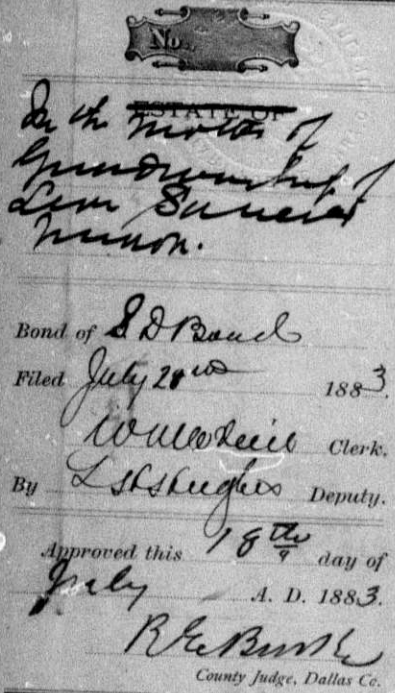 No.
ESTATE OF
In the matter of
Guardianship of
Levi
minor.
Bond of S D Bond
Filed July 2 1883.
Clerk.
By Hughes Deputy.
Approved this 18th day of
July A. D. 1883.
R E Burke
County Judge, Dallas Co.